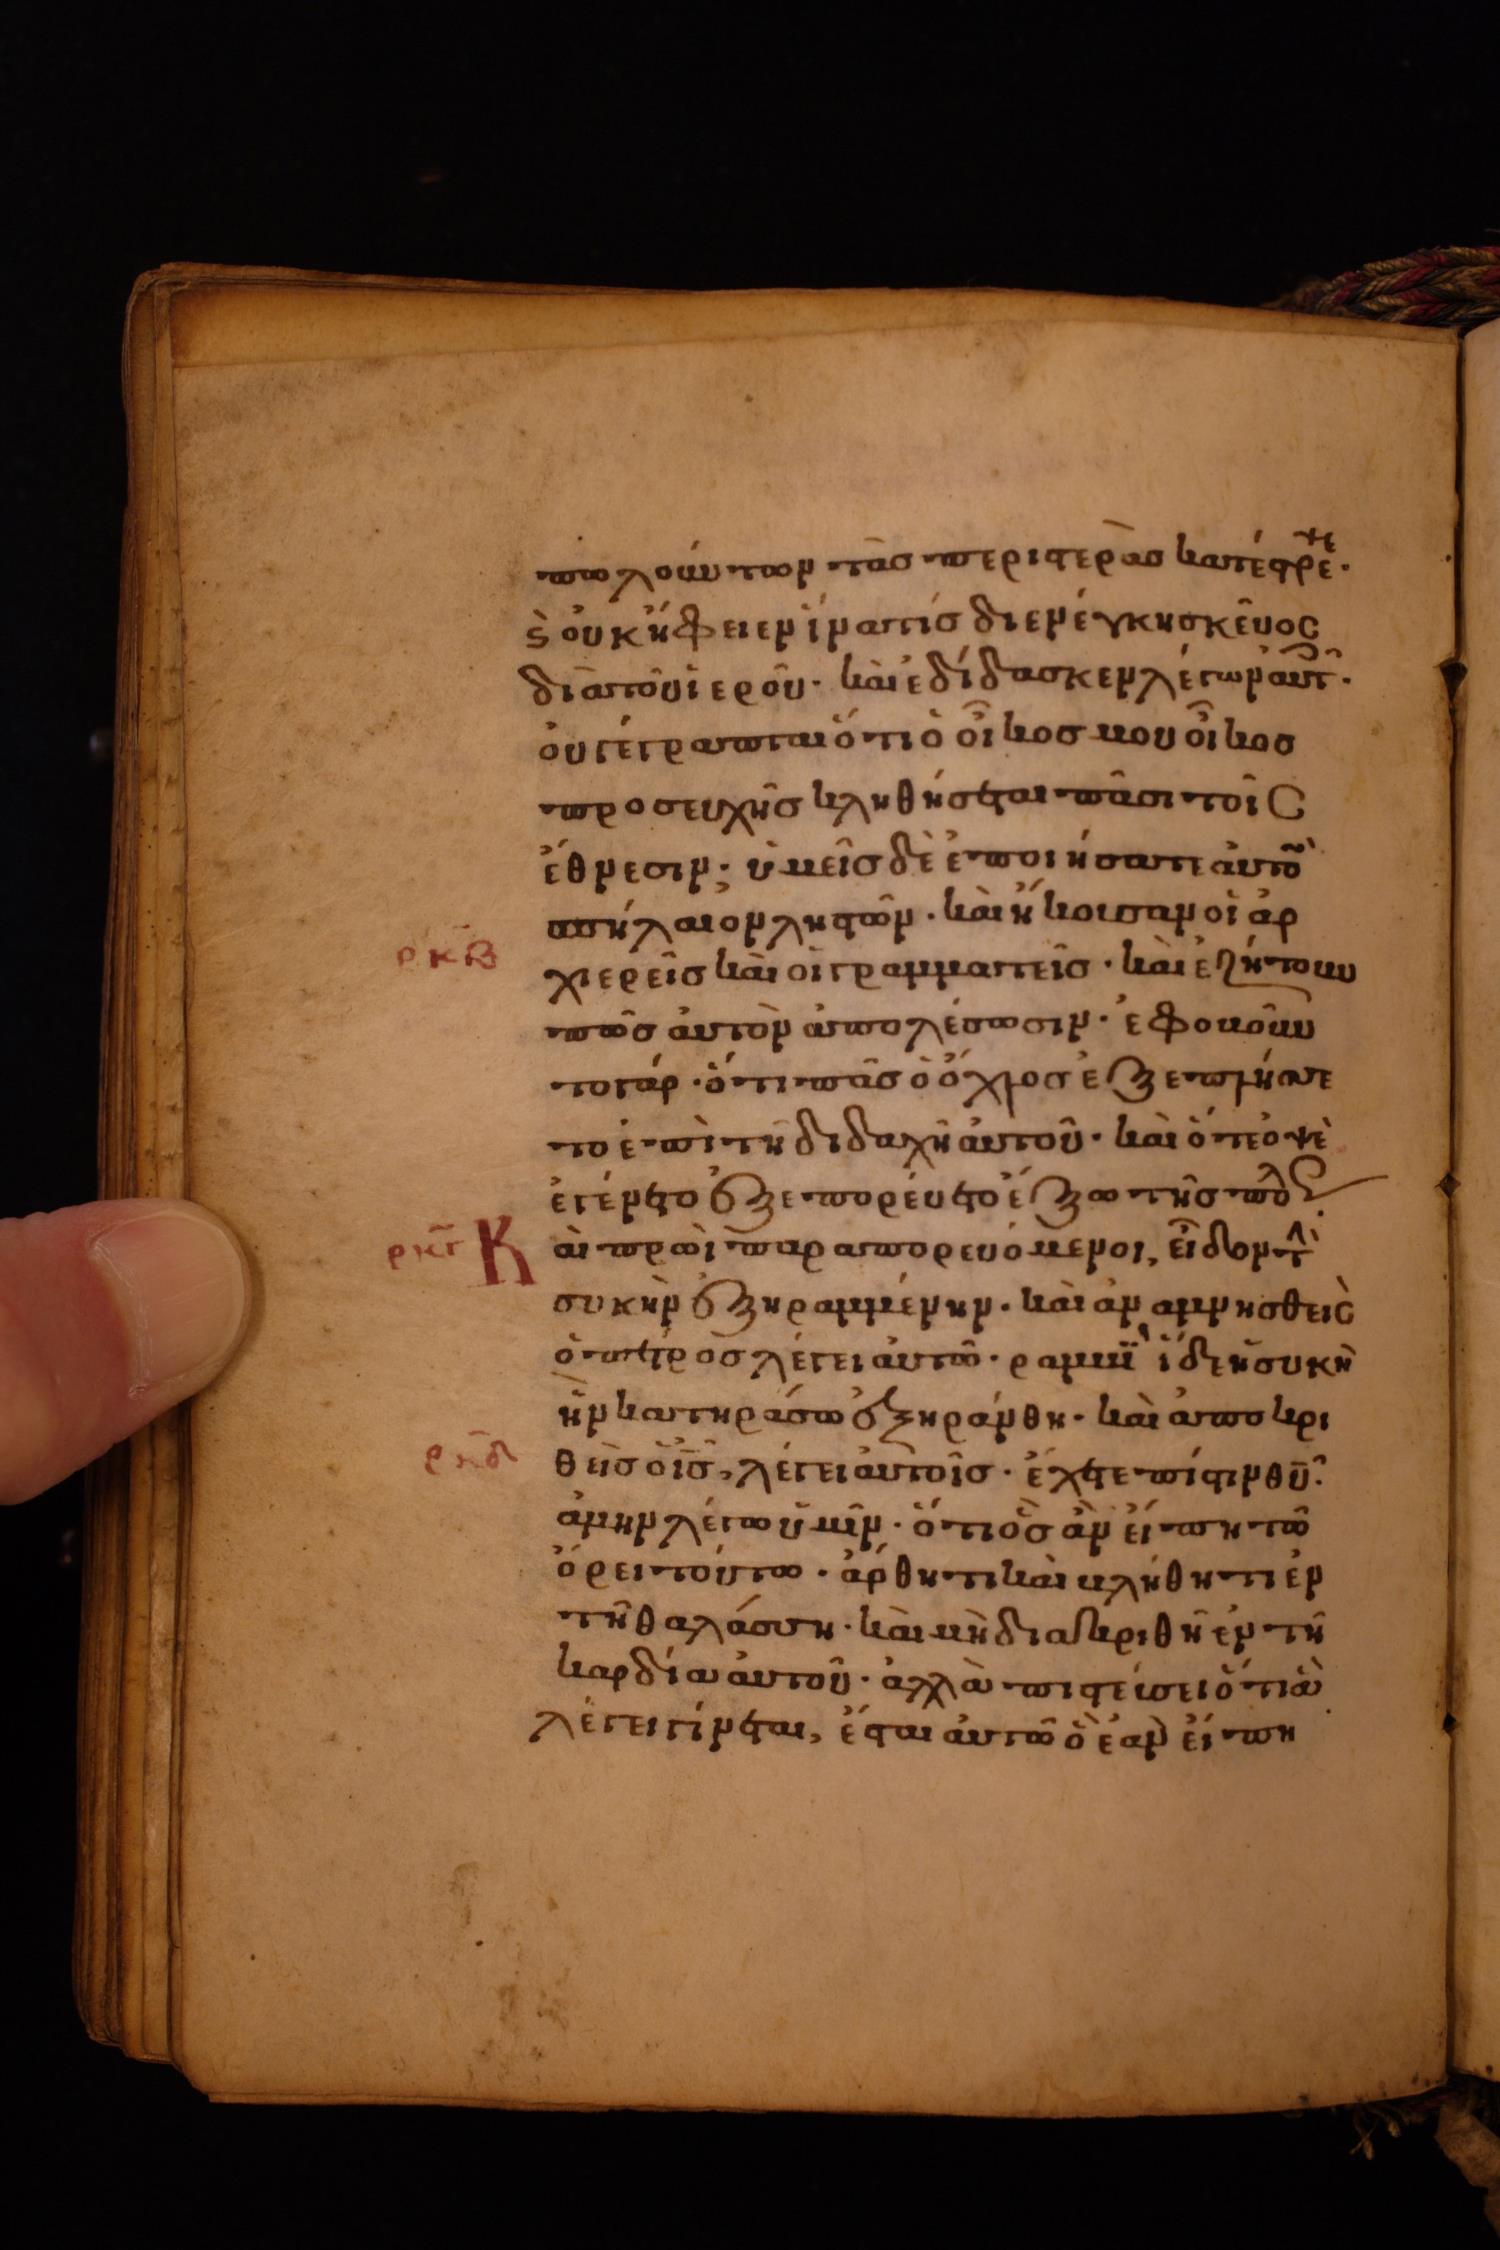 πωλούντων τὰς περιστερὰς κατέστρεψε·
ϛ̀ οὐκ ἤφιεν ἵνα τίς διενέγκη σκεῦος
διὰ τοῦ ἱεροῦ· καὶ ἐδίδασκεν λέγων αὐτ·
οὐ γέγραπται ὅτι ὁ οἶκος μου οἶκος
προσευχῆς κληθήσεται πᾶσι τοῖς
ἔθνεσιν; ὑμεῖς δὲ ἐποιήσατε αὐτὸ
σπήλαιον ληστῶν· καὶ ἤκουσαν οἱ ἀρ
ρκβ
χιερεῖς καὶ οἱ γραμματεῖς· καὶ ἐζήτουν
πῶς αὐτὸν ἀπολέσωσιν· ἐφοβοῦν
το γάρ· ὅτι πᾶς ὁ ὄχλος ἐξεπλήσσε
το ἐπὶ τῆ διδαχῆ αὐτοῦ· καὶ ὅτε ὀψὲ
ἐγένετο ἐξεπορεύετο ἔξω τῆς πόλεως
ρκγ Καὶ πρωῒ παραπορευόμενοι, εἶδον τὴν
συκὴν ἐξηραμμένην· καὶ ἀναμνησθεὶς
ὁ πέτρος λέγει αὐτῶ· ραββῒ ἴδε ἡ συκῆ
ἣν κατηράσω ἐξηράνθη· καὶ ἀποκρι
ρκδ
θεὶς ὁ ις, λέγει αὐτοῖς· ἔχετε πίστιν θυ·
ἀμὴν λέγω ὑμῖν· ὅτι ὃς ἂν εἴπη τῶ
ὄρει τούτω· ἄρθητι καὶ βλήθητι ἐν
τῆ θαλάσση· καὶ μὴ διακριθῆ ἐν τῆ
καρδία αὐτοῦ· ἀλλὰ πιστεύσει ὅτι ἃ
λέγει γίνεται, ἔσται αὐτῶ ὃ ἐὰν εἴπη